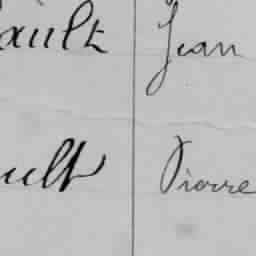 ault Jean
ult Pierre